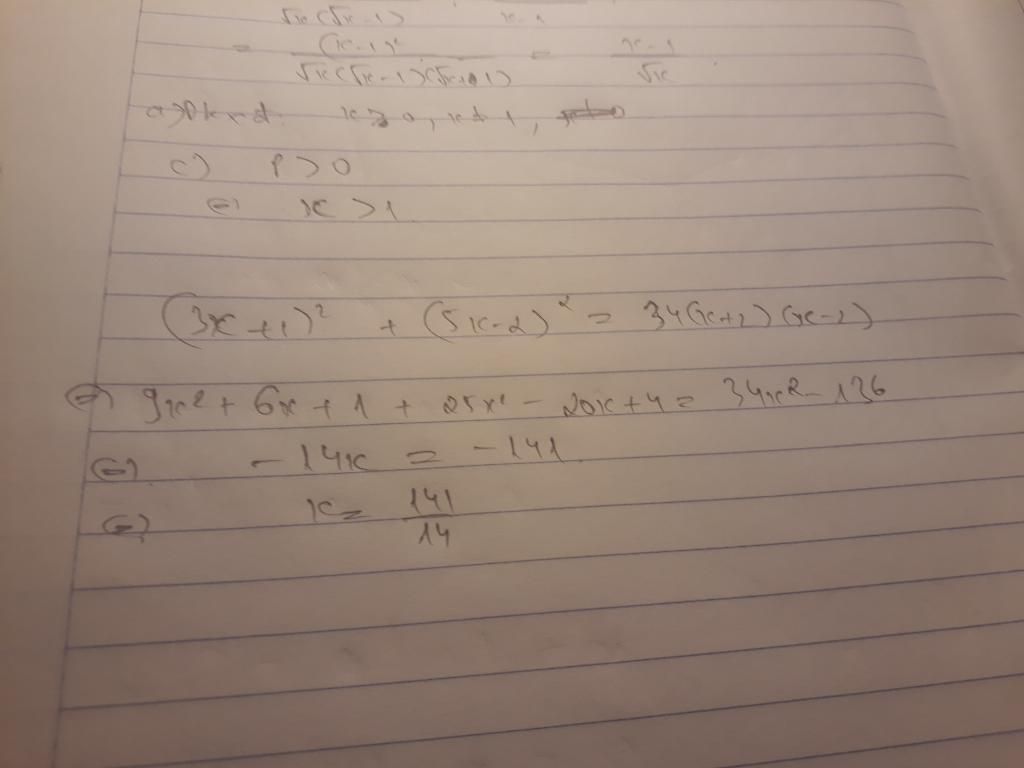 √x(√x-1) x-1
= (x-1)² / √x(√x-1)(√x+1) = x-1 / √x .
x ≥ 0, x ≠ 1,
c) P > 0
⇔ x > 1
(3x+1)² + (5x-2)² = 34(x+2)(x-2)
⇔ 9x² + 6x + 1 + 25x² - 20x + 4 = 34x² - 136
⇔ -14x = -141
⇔ x = 141 / 14